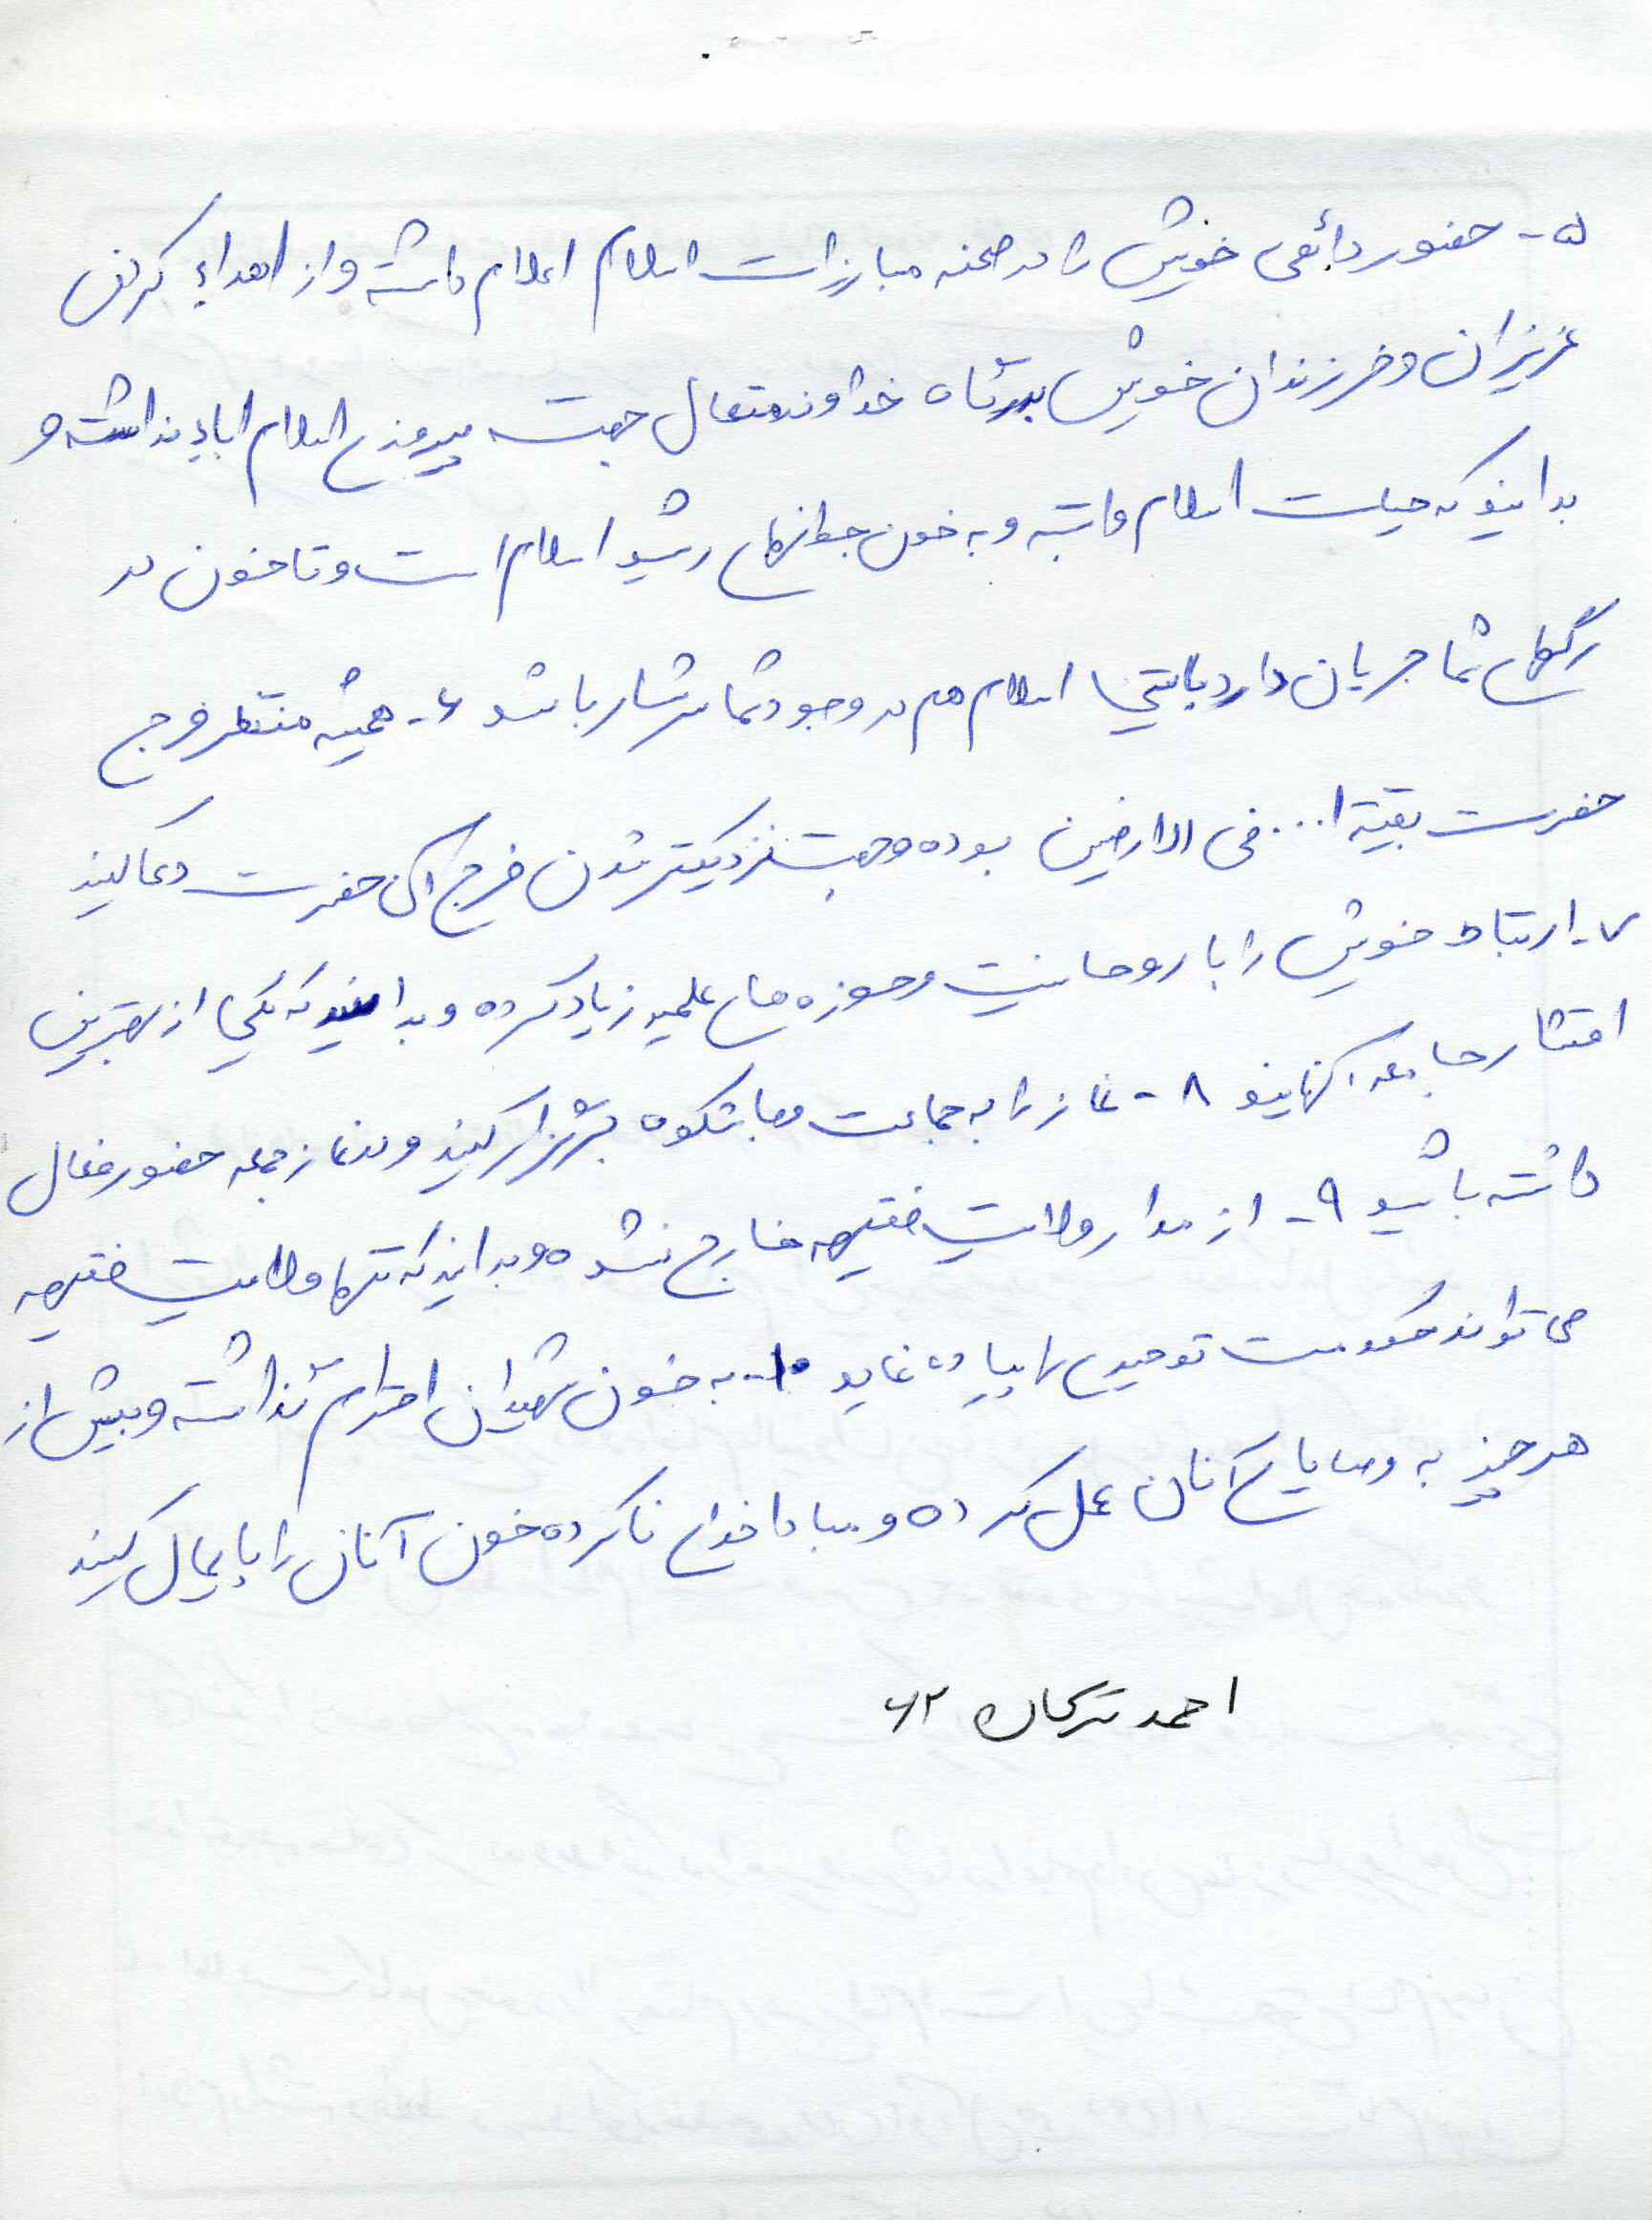 ۵- حضور دائمی خویش را در صحنه مبارزات اسلام اعلام داشته و از اهداء کردن
عزیزان و فرزندان خویش بدرگاه خداوند متعال جهت پیروزی اسلام اباء نداشته و
بدانید که حیات اسلام وابسته به خون جوانهای رشید اسلام است و تا خون در
رگهای شما جریان دارد بایستی اسلام هم در وجود شما سرشار باشد ۶- همیشه منتظر فرج
حضرت بقیة ا... فی الارضین بوده و جهت نزدیکتر شدن فرج آن حضرت دعا کنید
۷- ارتباط خویش را با روحانیت و حوزه های علمیه زیاد کرده و بدانید که یکی از بهترین
اقشار جامعه اینهایند ۸- نماز را به جماعت و با شکوه برگزار کنید و در نماز جمعه حضور فعال
داشته باشید ۹- از مدار ولایت فقیه خارج نشده و بدانید که تنها ولایت فقیه
می تواند حکومت توحیدی را پیاده نماید ۱۰- به خون شهیدان احترام گذاشته و بیش از
هر چیز به وصایای آنان عمل کرده و مبادا خدای ناکرده خون آنان را پایمال کنید
احمد ترکان ۶۲